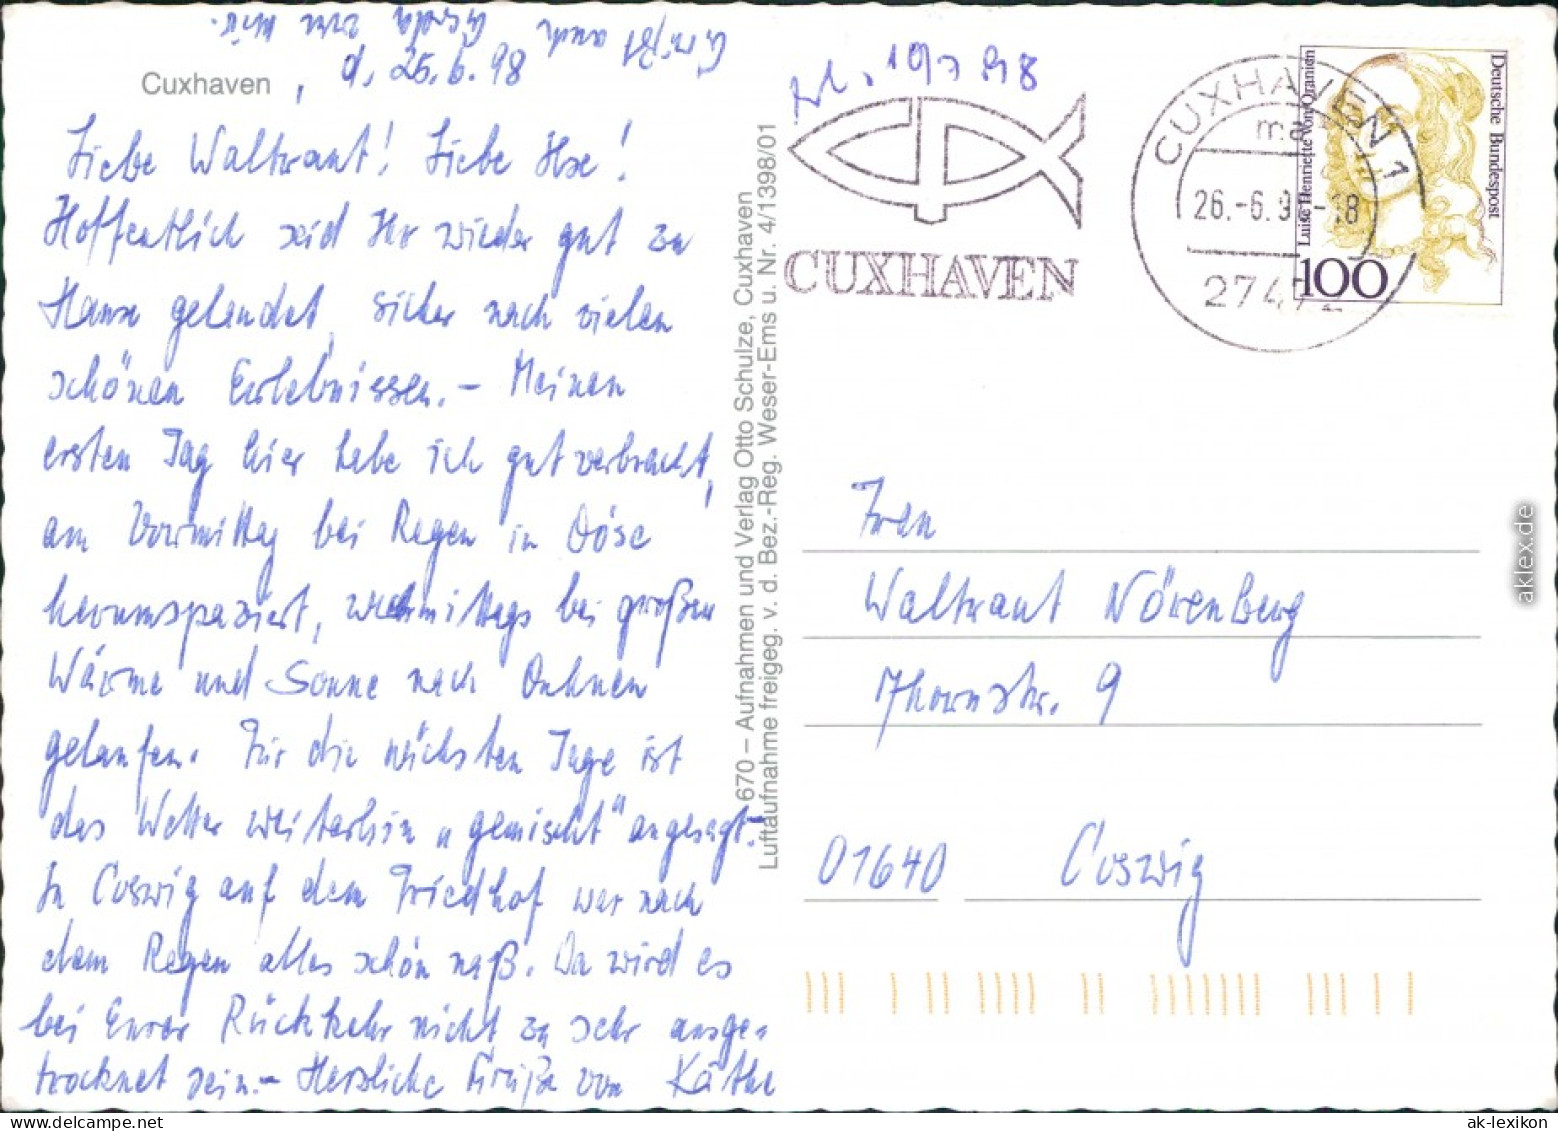 Cuxhaven, d. 25.6.98
Liebe Waltraut! Liebe Ilse!
Hoffentlich seid Ihr wieder gut zu
Hause gelandet, sicher nach vielen
schönen Erlebnissen. – Meinen
ersten Tag hier habe ich gut verbracht,
am Vormittag bei Regen in Döse
herumspaziert, nachmittags bei großer
Wärme und Sonne nach Duhnen
gelaufen. Für die nächsten Tage ist
das Wetter weiterhin „gemischt" angesagt.
In Coswig auf dem Friedhof war nach
dem Regen alles schön naß. Da wird es
bei Eurer Rückkehr nicht zu sehr ausge-
trocknet sein. – Herzliche Grüße von Käthe
Grüßt auch Gerda von mir.
670 – Aufnahmen und Verlag Otto Schulze, Cuxhaven
Luftaufnahme freigeg. v. d. Bez.-Reg. Weser-Ems u. Nr. 4/1398/01
19 7 98
CUXHAVEN
CUXHAVEN 1
ma
26.-6.9 -18
27472
Deutsche Bundespost
Luise Henriette von Oranien
100
Frau
Waltraut Nörenberg
Thornstr. 9
01640 Coswig
aklex.de
ak-lexikon